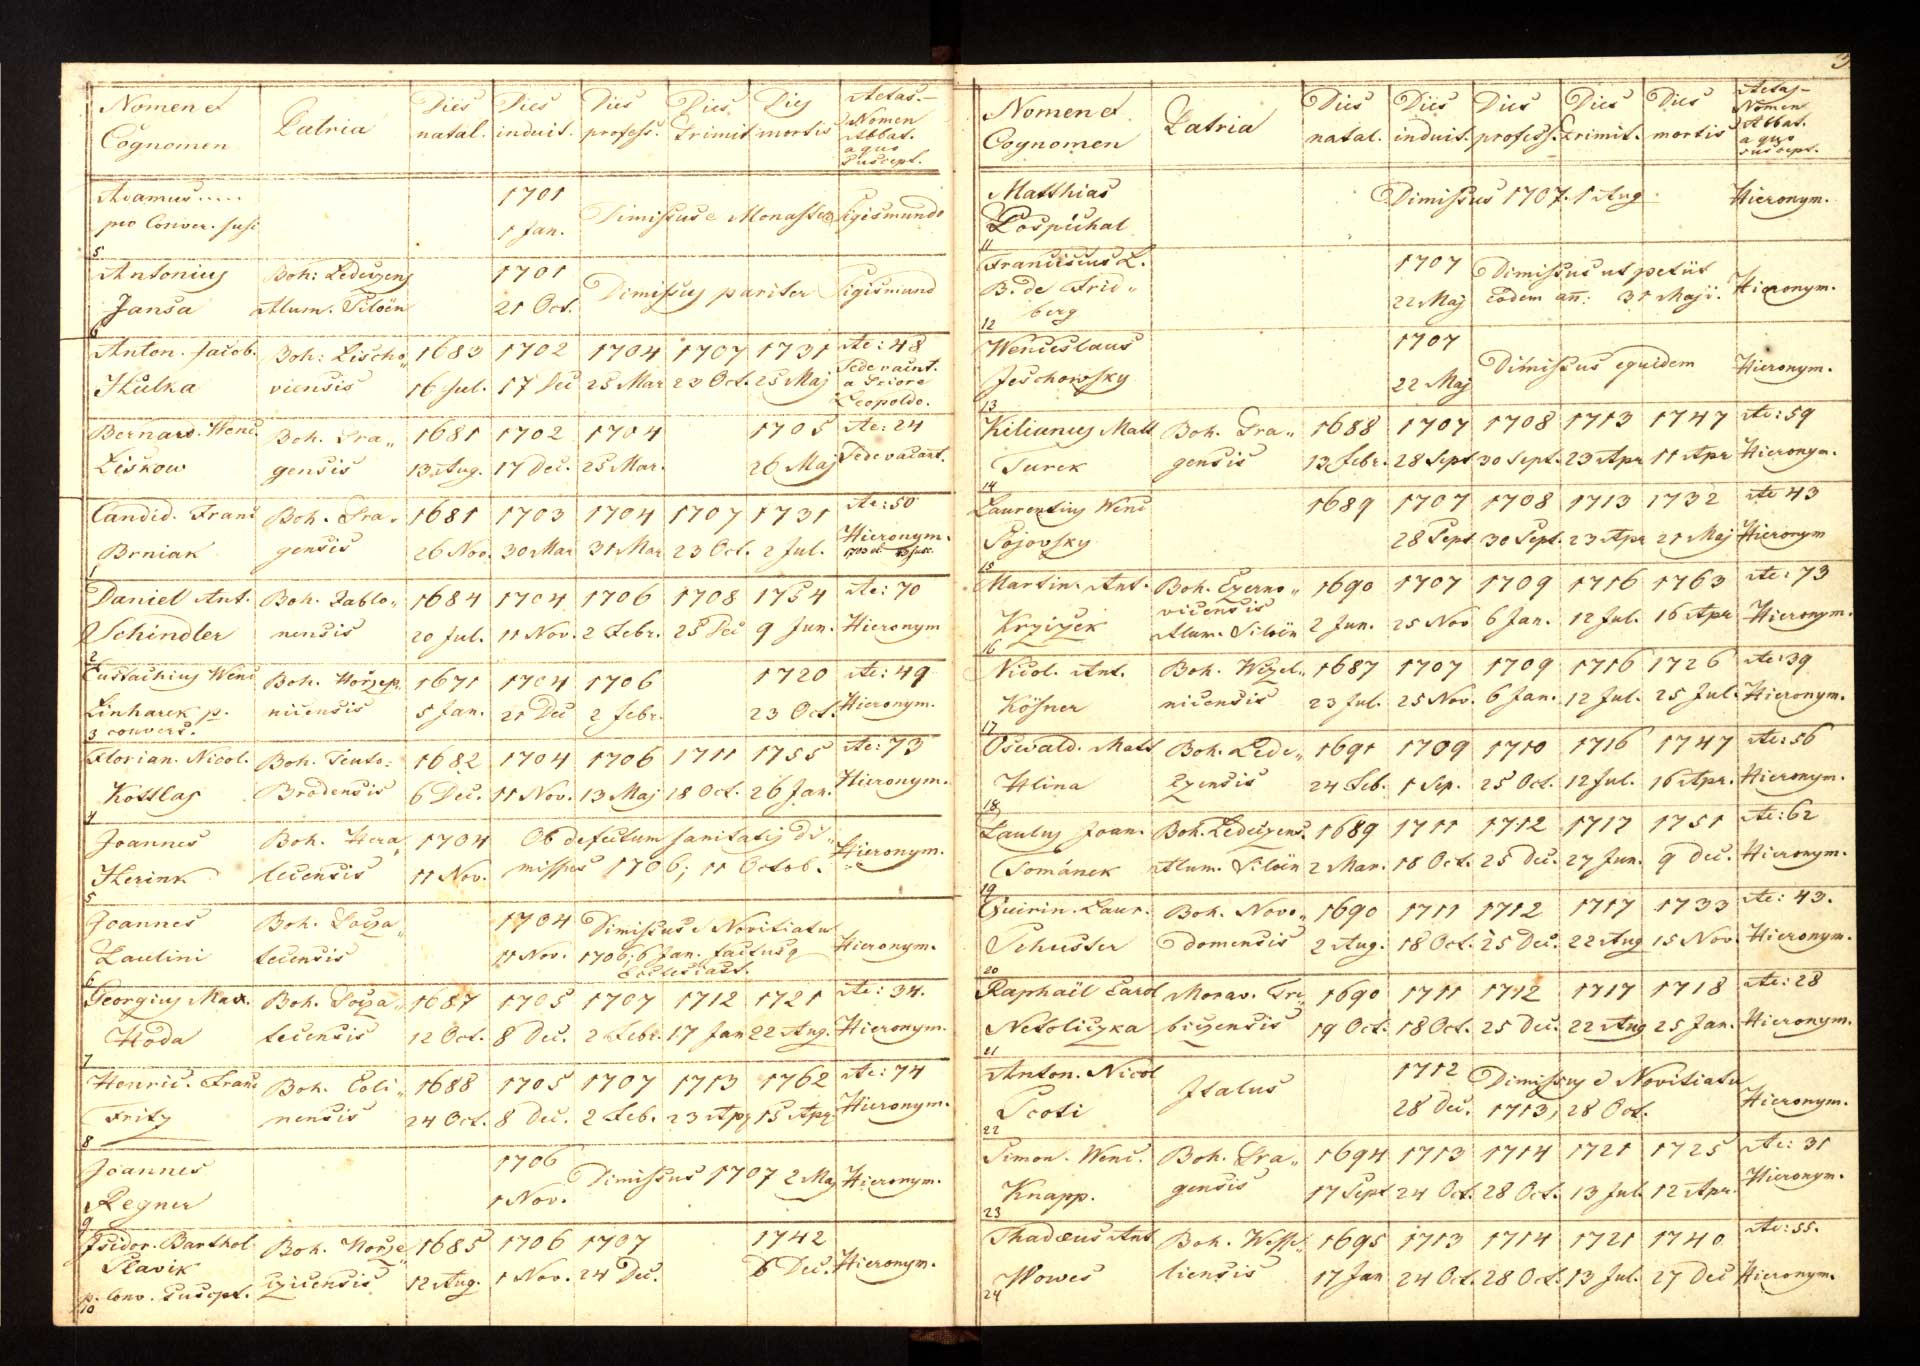 3
Nomen et Cognomen | Patria | Dies natal. | Dies induit. | Dies profess. | Dies Primit. | Dies mortis | Aetas.– Nomen Abbat. a quo suscept.
Adamus..... | | | 1701 | Dimissus e Monaster | Sigismundo
pro Conver. susc | | | 1 Jan.
5
Antonius | Boh: Ledeczens | | 1701 | Dimissus pariter | Sigismund
Jansa | Alum. Siloën | | 21 Oct.
6
Anton. Jacob. | Boh: Lischo„ | 1683 | 1702 | 1704 | 1707 | 1731 | Ae: 48
Kulka | viensis | 16 Jul. | 17 Dec | 25 Mar | 23 Oct. | 25 Maj | Sede vacint. a Priore Leopoldo.
Bernard. Wenc. | Boh. Pra„ | 1681 | 1702 | 1704 | | 1705 | Ae: 24
Liskow | gensis | 13 Aug. | 17 Dec. | 25 Mar. | | 26 Maj | Sede vacant.
Candid. Franc | Boh. Pra„ | 1681 | 1703 | 1704 | 1707 | 1731 | Ae: 50
Brniak | gensis | 26 Nov. | 30 Mar | 31 Mar | 23 Oct. | 2 Jul. | Hieronym.
1
Daniel Ant. | Boh. Zablo„ | 1684 | 1704 | 1706 | 1708 | 1754 | Ae: 70
Schindler | nensis | 20 Jul. | 11 Nov. | 2 Febr. | 25 Dec | 9 Jun. | Hieronym
2
Eustachius Wenc | Boh. Horzep. | 1671 | 1704 | 1706 | | 1720 | Ae: 49
Linharek p. | nicensis | 5 Jan. | 21 Dec | 2 febr. | | 23 Oct. | Hieronym.
3 convers.
Florian. Nicol. | Boh. Teuto: | 1682 | 1704 | 1706 | 1711 | 1755 | Ae: 73
Kottlas | Brodensis | 6 Dec. | 11 Nov. | 13 Maj | 18 Oct. | 26 Jan. | Hieronym.
4
Joannes | Boh. Hera„ | 1704 | Ob defectum sanitatis di„ | Hieronym.
Kerink | lecensis | 11 Nov. | missus 1706; 11 Octob.
5
Joannes | Boh. Sopa„ | | 1704 | Dimissus e Novitiatu
Paulini | tecensis | | 11 Nov. | 1706; 6 Jan. factusq | Hieronym.
Ecclesiast.
6
Georgius Max. | Boh. Sopa„ | 1687 | 1705 | 1707 | 1712 | 1721 | Ae: 34.
Hoda | tecensis | 12 Oct. | 8 Dec. | 2 Febr. | 17 Jan | 22 Aug. | Hieronym.
7
Henric. Franc | Boh. Coli„ | 1688 | 1705 | 1707 | 1713 | 1762 | Ae: 74
Fritz | nensis | 24 Oct. | 8 Dec. | 2 Feb. | 23 Apr | 15 Apr | Hieronym.
8
Joannes | | | 1706 | Dimissus 1707 2 Maj | Hieronym.
Regner | | | 1 Nov.
9
Isidor. Barthol. | Boh. Horze„ | 1685 | 1706 | 1707 | | 1742
Slavik | czicensis | 12 Aug. | 1 Nov. | 24 Dec. | | 6 Dec. | Hieronym.
p. Conv. suscept.
10
Nomen et. Cognomen | Patria | Dies natal. | Dies induit. | Dies profess. | Dies Primit. | Dies mortis | Aetas– Nomen Abbat. a quo suscept.
Matthias | | Dimissus 1707. 1 Aug. | Hieronym.
Pospichal
11
Franciscus L. | | | 1707 | Dimissus ut petiit
B. de Frid„ | | | 22 Maj | eodem añ: 31 Maji. | Hieronym.
berg
12
Wenceslaus | | | 1707 | Dimissus equidem | Hieronym.
Jeschowsky | | | 22 Maj
13
Kilianus Matt | Boh. Pra„ | 1688 | 1707 | 1708 | 1713 | 1747 | Ae: 59
Turek | gensis | 13 Febr. | 28 Sept | 30 Sept. | 23 Apr | 11 Apr | Hieronym.
14
Laurentius Wenc | | 1689 | 1707 | 1708 | 1713 | 1732 | Ae 43
Pojovsky | | | 28 Sept | 30 Sept. | 23 Apr | 21 Maj | Hieronym
15
Martin. Ant. | Boh. Czerno„ | 1690 | 1707 | 1709 | 1716 | 1763 | Ae: 73
Krziczek | vicensis Alum. Siloën | 2 Jun. | 25 Nov | 6 Jan. | 12 Jul. | 16 Apr | Hieronym.
16
Nicol. Ant. | Boh. Wezel„ | 1687 | 1707 | 1709 | 1716 | 1726 | Ae: 39
Kösner | nicensis | 23 Jul. | 25 Nov. | 6 Jan. | 12 Jul. | 25 Jul. | Hieronym.
17
Oswald. Matt | Boh. Lede„ | 1691 | 1709 | 1710 | 1716 | 1747 | Ae: 56
Hlina | czensis | 24 Feb. | 1 Sep. | 25 Oct. | 12 Jul. | 16 Apr. | Hieronym.
18
Paulus Joan. | Boh. Ledeczens. | 1689 | 1711 | 1712 | 1717 | 1751 | Ae: 62
Tománek | Alum. Siloën | 2 Mar. | 18 Oct. | 25 Dec. | 27 Jun. | 9 Dec. | Hieronym.
19
Quirin. Laur. | Boh. Novo„ | 1690 | 1711 | 1712 | 1717 | 1733 | Ae: 43.
Schuster | domensis | 2 Aug. | 18 Oct. | 25 Dec. | 22 Aug | 15 Nov. | Hieronym.
20
Raphaël Carol | Morav. Tre„ | 1690 | 1711 | 1712 | 1717 | 1718 | Ae: 28
Netoliczka | biczensis | 19 Oct. | 18 Oct. | 25 Dec. | 22 Aug | 25 Jan. | Hieronym.
21
Anton. Nicol | Italus | | 1712 | Dimissus e Novitiatu
Scoti | | | 28 Dec. | 1713; 28 Oct. | Hieronym.
22
Simon. Wenc. | Boh. Pra„ | 1694 | 1713 | 1714 | 1721 | 1725 | Ae: 31
Knapp. | gensis | 17 Sept | 24 Oct. | 28 Oct. | 13 Jul. | 12 Apr. | Hieronym.
23
Thadæus Ant | Boh. Wesse„ | 1695 | 1713 | 1714 | 1721 | 1740 | Ae: 55.
Wowes | liensis | 17 Jan | 24 Oct. | 28 Oct. | 13 Jul. | 27 Dec | Hieronym.
24